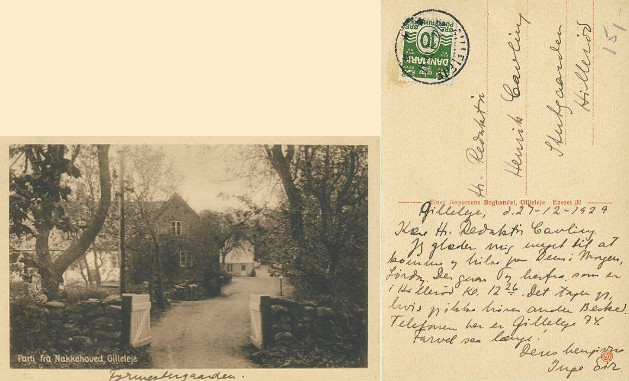 Parti fra Nakkehoved, Gilleleje
Formestergaarden.
GILLELEJE
10
DANMARK
Hr. Redaktör
Henrik Cavling
Stutgaarden
Hilleröd
151
Jespersens Boghandel, Gilleleje
Gilleleje, d. 27-12-1929
Kære Hr. Redaktör Cavling
Jeg glæder mig meget til at
komme og hilse paa Dem i Morgen,
Fordy Daaron og herfra, som er
i Hilleröd Kl. 12 26. Det tager jeg,
hvis jeg ikke hörer anden Besked.
Telefonen her er Gilleleje 74.
Farvel saa længe!
Deres hengivne
Inge